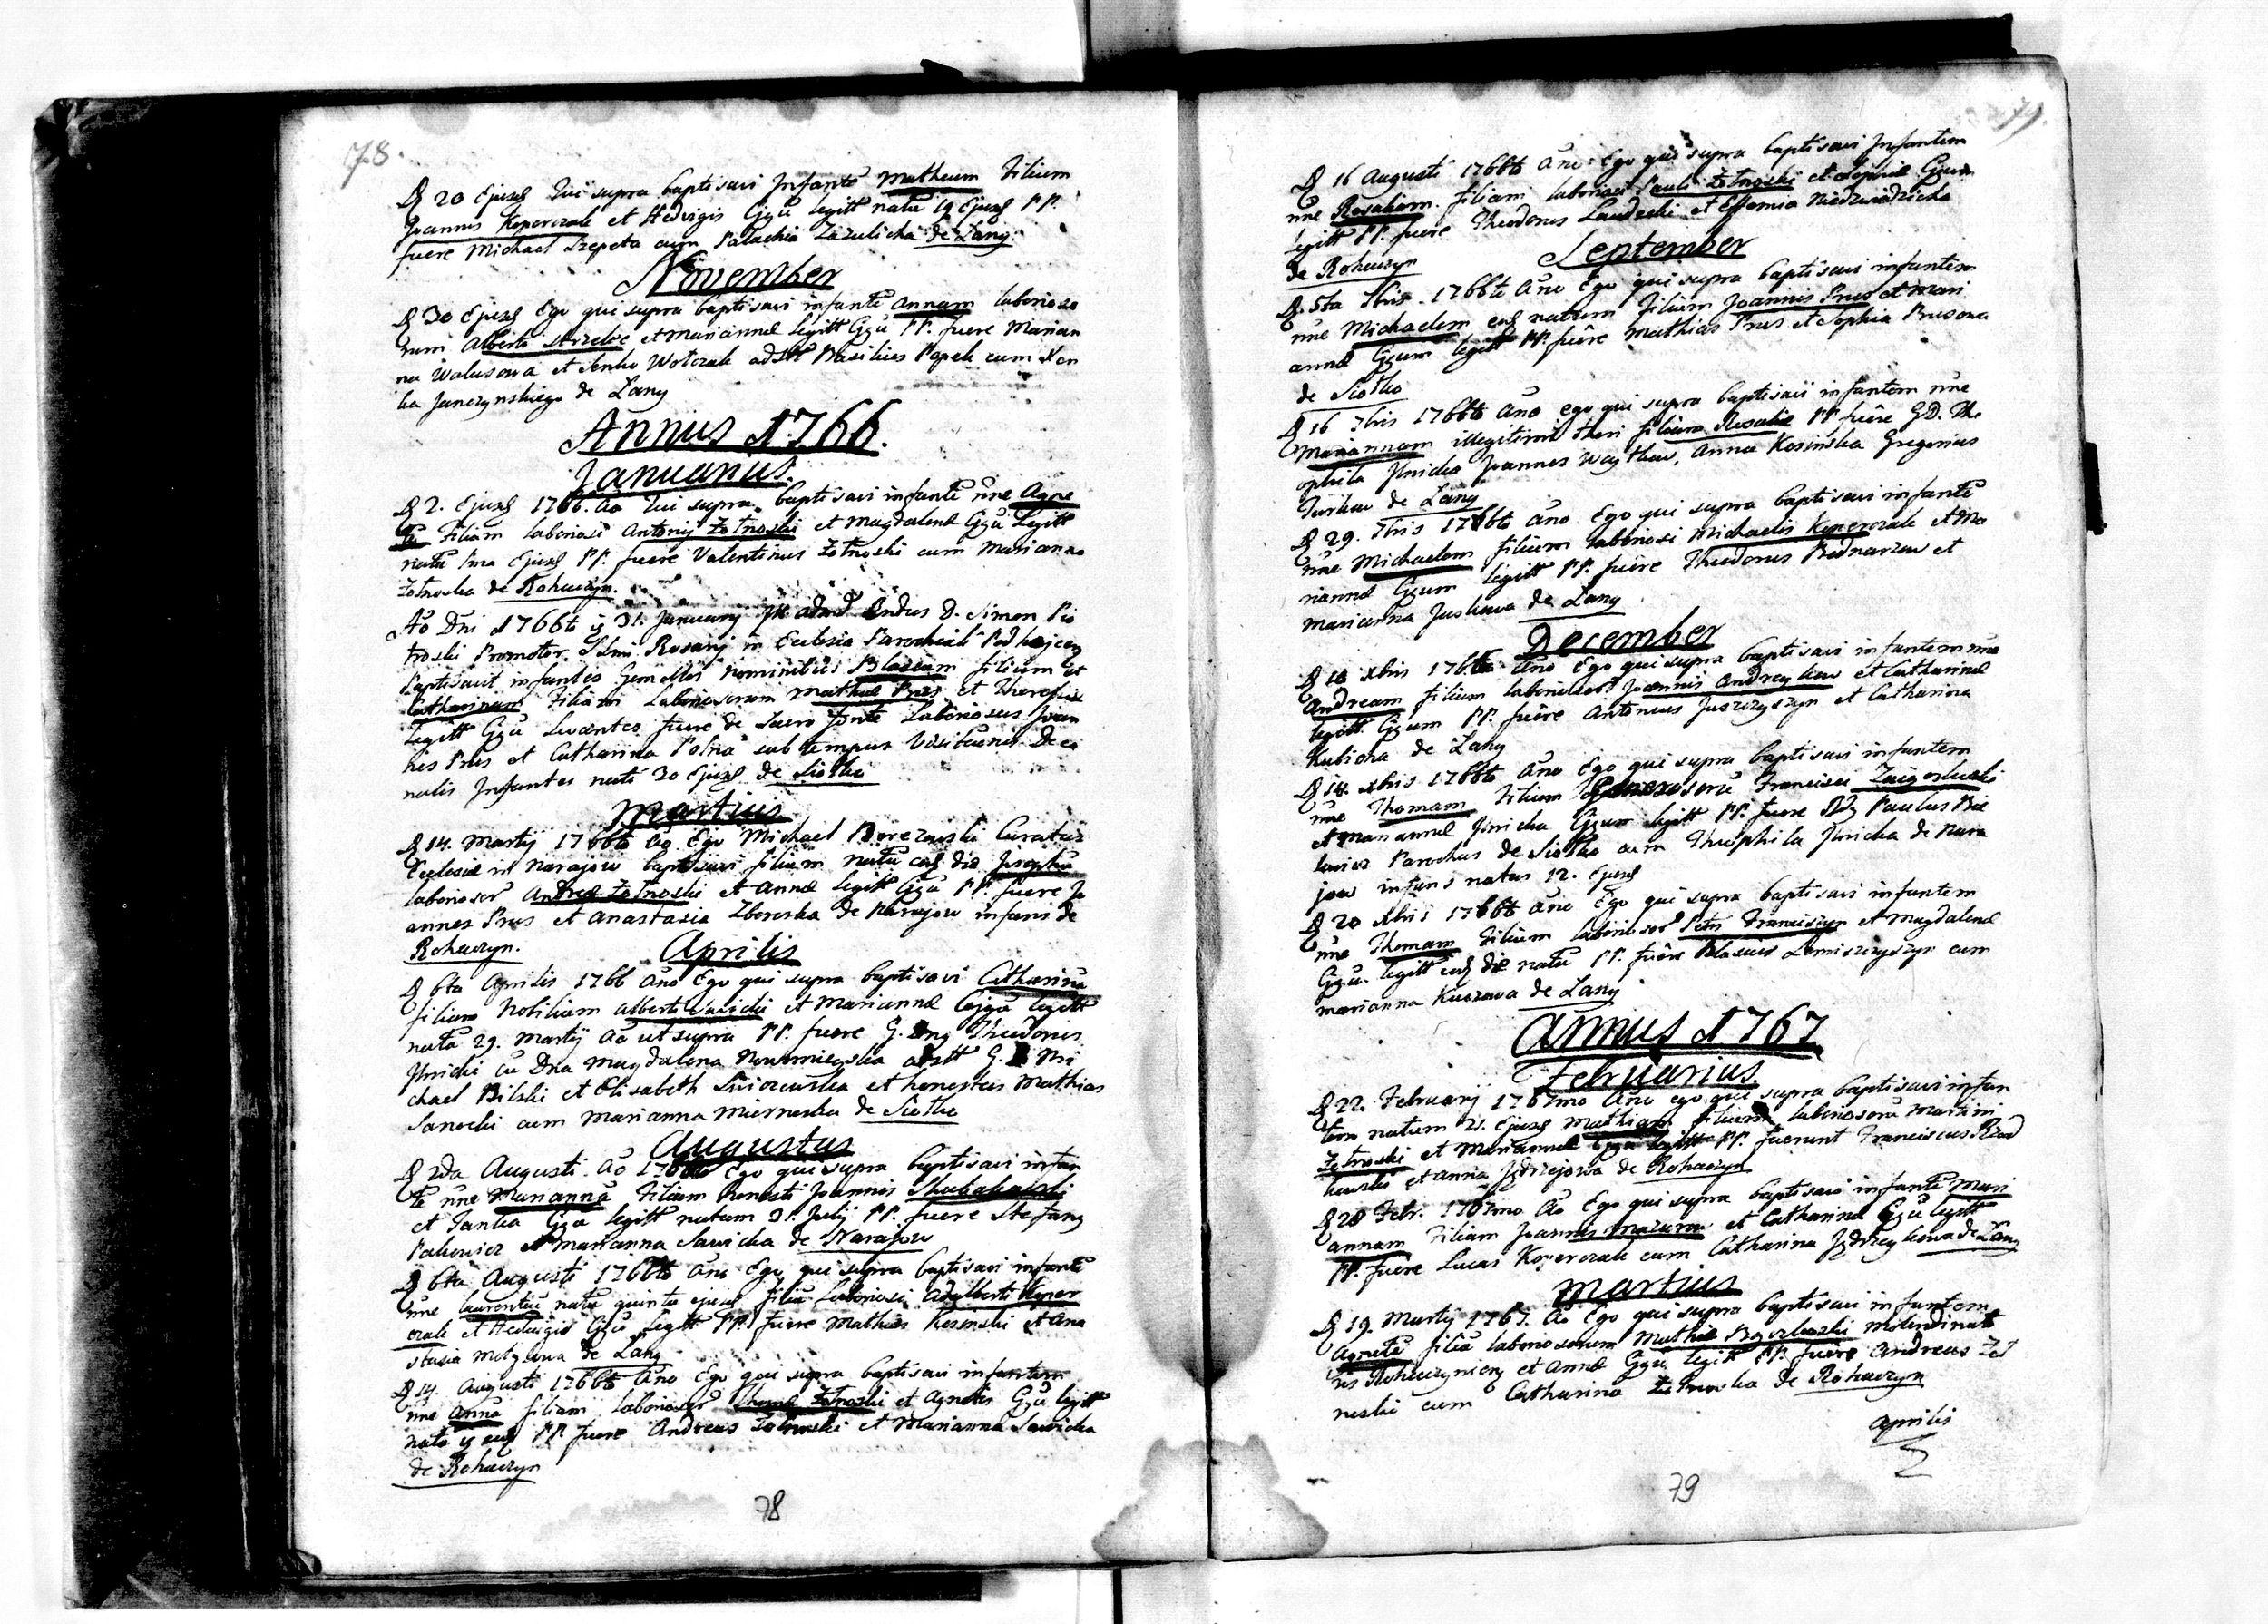 78.
D 20 Ejusd Qui supra baptisavi Infantē Matheum Filium
Joannis Koperczak et Hedvigis Cjgū legitt natū 19 Ejusd PP.
fuere Michael Szepeta cum Palachia Zazulicha de Lany.
November
D 30 Ejusd Ego qui supra baptisavi infantē Annam laborioso
rum Alberti Strzelec et Mariannæ Legitt Cjgū PP. fuere Marian
na Walusowa et Senko Wolczak adstt Basilius Popek cum
ka Janczynskiego de Lany
Annus 1766.
Januarius.
D 2. Ejusd 1766. Ao Qui supra baptisavi infantē nñe Agne
tē Filiam laboriosi Antonij Zotnoski et Magdalenæ Cjgū Legitt
natū 1ma Ejusd PP. fuere Valentinus Zotnoski cum Marianna
Zotnoska de Rohaczyn.
Ao Dni 1766to D 31. January Rndus D. Simon Pio
troski Promotor SSmi Rosarij in Ecclesia Parochiali Podhajcen
baptisavit infantes Gemellos nominibus Blasium filium et
Catharinam Filiam Laboriosorum Mathiæ Prus et Theresiæ
Legitt Cjgū Levantes fuere de Sacro fonte Laboriosus Joan
nes Prus et Catharina Polna sub tempus Visitaonis Deca
nalis Infantes nati 30 Ejusd de Siołko
Martius
D 14. Martij 1766to Ao Ego Michael Berezowski Curatus
Ecclesiæ in Narajow baptisavi filium natū ead die Josephū
laboriosor Andreæ Zotnoski et Annæ legitt Cjgū PP. fuere Jo
annes Prus et Anastasia Zboroska de Narajow infans de
Rohaczyn.
Aprilis
D 6ta Aprilis 1766 Ano Ego qui supra baptisavi Catharinā
filiam Nobilium Alberti Sawicki et Mariannæ Cjgū legitt
natā 29. Martij Ao ut supra PP. fuere G. Theodorus
Jlnicki cū Dna Magdalena Nowomieyska adstt G. Mi
chael Bilski et Elisabeth et honestus Mathias
Sanocki cum Marianna Miernoska de Siołko
Augustus
D 2da Augusti Ao 1766to Ego qui supra baptisavi infan
tē nñe Mariannā Filiam Honesti Joannis
et Tanka Cjgū legitt natam 31. Julij PP. fuere Stefany
Pahowicz et Marianna Sawicka de Narajow
D 6ta Augusti 1766to Ano Ego qui supra baptisavi infantē
nñe Laurentiū natū quinta ejusd filiū Laboriosi Adalberti Koper
czak et Hedwigis Cjgū Legitt PP. fuere Mathias Kosinski et Ana
stasia de Lany
D 14. Augusti 1766to Ano Ego qui supra baptisavi infantem
nñe Annā filiam laboriosor Thomæ Zotnoski et Agnetis Cjgū legitt
natā ead PP. fuere Andreas Zotnoski et Marianna Sawicka
de Rohaczyn
78
79.
D 16 Augusti 1766to Ano Ego qui supra baptisavi Infantem
nñe Rosaliam. filiam laboriosi Pauli Zotnoski et Sophiæ Cjgum
legitt PP. fuere Theodorus Laudzki et Effemia Niedzwiedzicha
de Rohaczyn
September
D. 5ta 7bris 1766to Ano Ego qui supra baptisavi infantem
nñe Michaelem ead natum Filium Joannis Prus et Mari
annæ Cjgum legitt PP. fuêre Mathias Prus et Sophia Prusowa
de Siołko
D 16 7bris 1766to Ano ego qui supra baptisavi infantem nñe
Mariannam illegitimi thori filiam Rosaliæ PP fuêre GD. The
ophila Jlnicka Joannes Woytkow, Anna Kosinska Gregorius
Jurkow de Lany
D 29. 7bris 1766to Ano Ego qui supra baptisavi infantē
nñe Michaelem filium laboriosi Michaelis Koperczak et Ma
riannæ Cjgum legitt PP. fuere Theodorus Bednarzow et
Marianna Juskowa de Lany
December
D 10 Xbris 1766to Ano Ego qui supra baptisavi infantem nñe
Andream filium laborioser Joannis Andreykow et Catharinæ
legitt. Cjgum PP. fuêre Antonius Juszczyszyn et Catharina
Kubicka de Lany
D 14. Xbris 1766to Ano Ego qui supra baptisavi infantem
nñe Thomam Filium Generosorū Francisci
et Mariannæ Jlnicka Cjgum legitt PP. fuere Paulus Bie
lewicz Parochus de Siołko cum Theophila Jlnicka de Nara
jow infans natus 12. Ejusd
D 20 Xbris 1766to Ano Ego qui supra baptisavi infantem
nñe Thomam Filium laboriosor Petri Franciszyn et Magdalenæ
Cjgū. legitt ead die natū PP. fuêre Blasius Lemiszczyszyn cum
Marianna Kuszowa de Lany
Annus 1767
Februarius
D 22. Februarij 1767mo Ano ego qui supra baptisavi infan
tem natum 21. Ejusd Mathiam filium laboriosorū Martini
Zotnoski et Mariannæ Cjgū legitt PP. fuerunt Franciscus Rzad
kowski et Anna Jędrzejowa de Rohaczyn
D 28 Febr. 1767mo Ao Ego qui supra baptisavi infantē Mari
annam Filiam Joannis Mazurow et Catharinæ Cjgū legitt
PP. fuere Lucas Koperczak cum Catharina Jędrzeykowa de Lany
Martius
D 19. Martij 1767. Ao Ego qui supra baptisavi infantem
Agnetē filiā laboriosorum Mathiæ molendinato
ris Rohaczynien et Annæ Cjgū legitt PP. fuêre Andreas Zot
noski cum Catharina Zotnoska de Rohaczyn
Aprilis
79